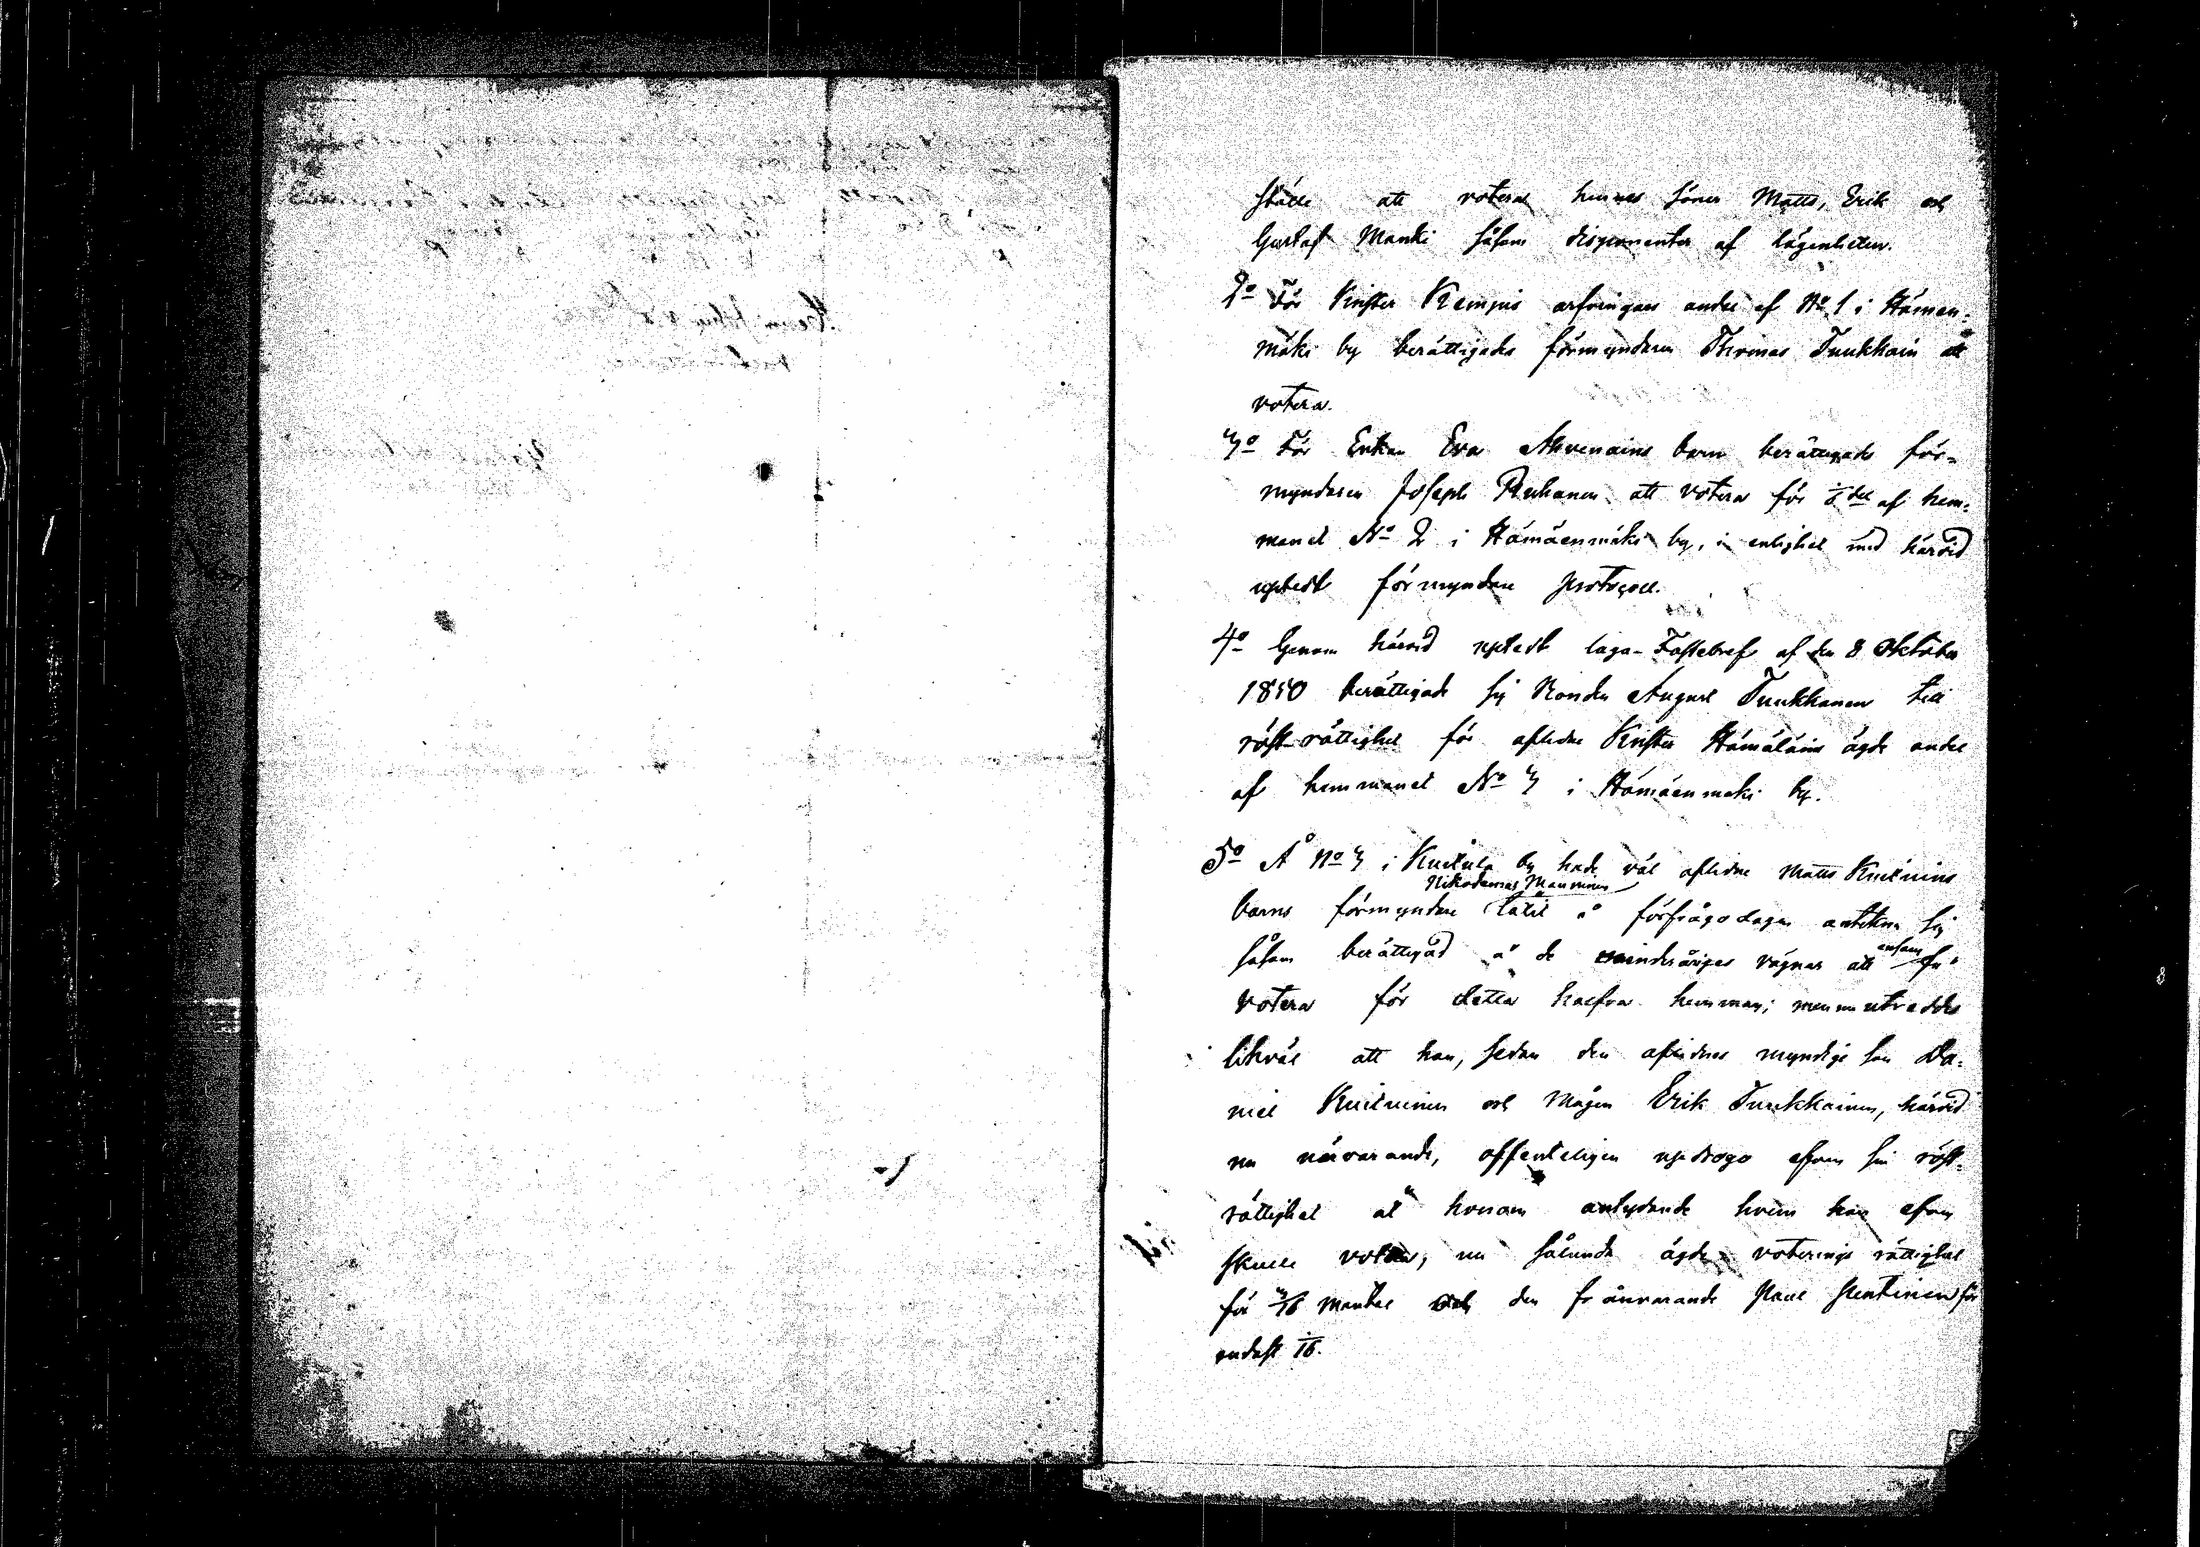 ställe att votera hennes söner Matts, Erik och
Gustaf Manki såsom disponenter af lägenheten.
2o För Krister Kempis arfvingars andel af No 1 i Hämeen-
mäki by berättigades förmyndaren Thomas Tuukkain att
votera.
3o För Enkan Eva Ahvenains barn berättigades för-
myndaren Joseph Puhanen att votera för 1/8 del af hem-
manet No 2 i Hämäenmäki by, i enlighet med härvid
uptedt förmyndare protocoll.
4o Genom härvid uptedt laga Fastebref af den 8 Oktober
1850 berättigade sig Bonden August Tuukkanen till
röst-rättighet för aflidne Krister Hämäläins ägde andel
af hemmanet No 3 i Hämäenmäki by.
5o Å No 3 i Kuitula by hade väl aflidne Matts Kuitunins
Nikodemus Manninen
barns förmyndare låtit å förfrågodagen anteckna sig
såsom berättigad å de minderåriges vägnar att ensam
votera för detta halfva hemman; men nu utreddes
likväl att han, sedan den aflidnes myndige son Da-
niel Kuitunen och Mågen Erik Tuukkainen, härvid
nu närvarande, offenteligen updrogo äfven sin röst-
rättighet åt honom antydande hvem han äfven
skulle votera, nu sålunda ägde voterings rättighet
för 3/16 mantal och den frånvarande Paul Pentinen för
endast 1/16.